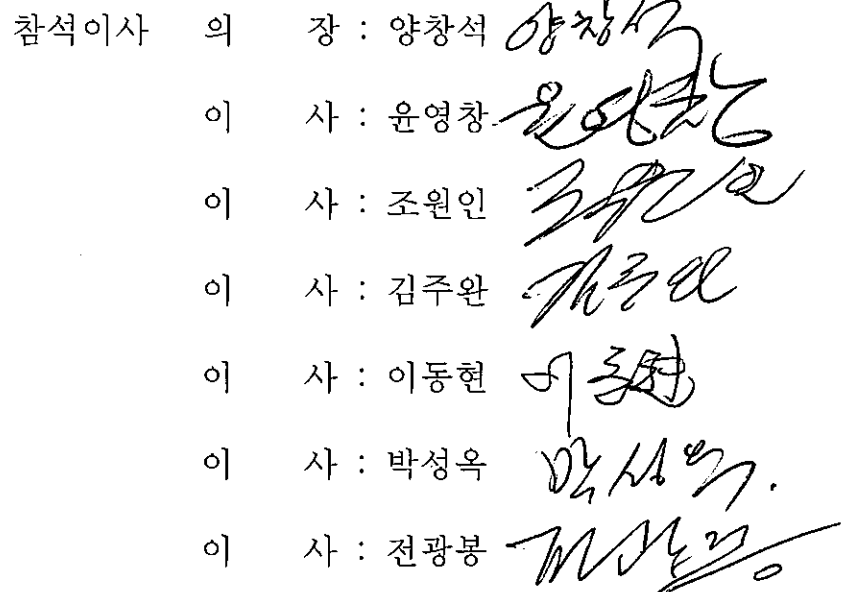 참석이사 의 장 : 양창석 양창석
이 사 : 윤영창 윤영창
이 사 : 조원인 조원인
이 사 : 김주완 김주완
이 사 : 이동현 이동현
이 사 : 박성옥 박성옥.
이 사 : 전광봉 전광봉